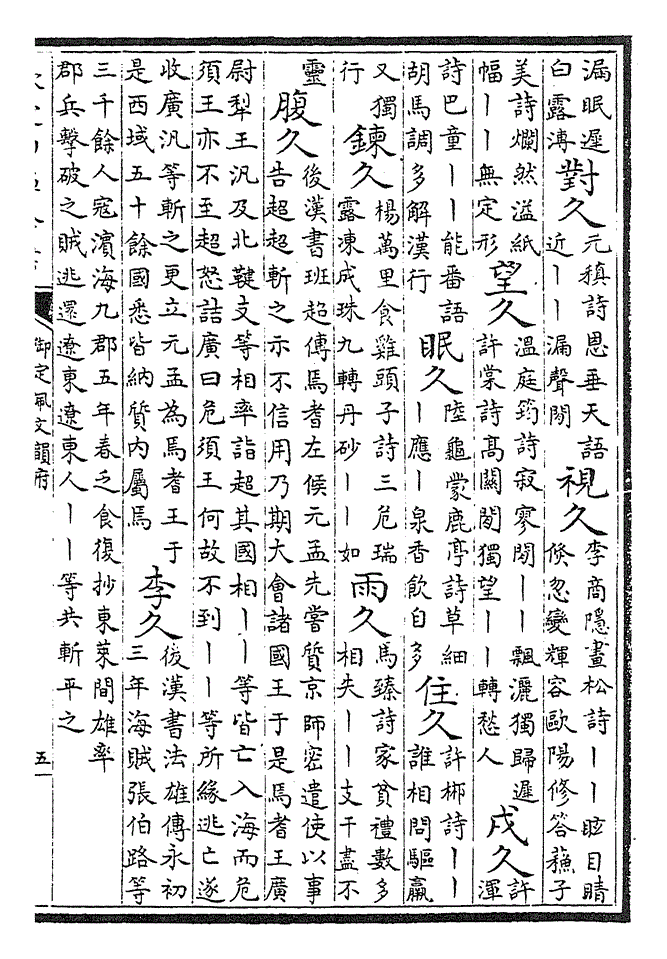 漏眠遲
白露漙
對久
元稹詩思垂天語
近丨丨漏聲閒
視久
李商隱畫松詩丨丨眩目睛
倏忽變輝容歐陽修答蘓子
美詩爛然溢紙
幅丨丨無定形
望久
溫庭筠詩寂寥閒丨丨飄灑獨歸遲
許棠詩髙闗閒獨望丨丨轉愁人
戍久
許
渾
詩巴童丨丨能番語
胡馬調多解漢行
眠久
陸龜蒙鹿亭詩草細
丨應丨泉香飲自多
住久
許郴詩丨丨
誰相問驅羸
又獨
行
鍊久
楊萬里食雞頭子詩三危瑞
露凍成珠九轉丹砂丨丨如
雨久
馬臻詩家貧禮數多
相失丨丨支干盡不
靈
腹久
後漢書班超傳焉耆左候元孟先嘗質京師密遣使以事
告超超斬之示不信用乃期大會諸國王于是焉耆王廣
尉犁王汎及北鞬支等相率詣超其國相丨丨等皆亡入海而危
須王亦不至超怒詰廣曰危須王何故不到丨丨等所緣逃亡遂
收廣汎等斬之更立元孟為焉耆王于
是西域五十餘國悉皆納質內屬焉
李久
後漢書法雄傳永初
三年海賊張伯路等
三千餘人寇濱海九郡五年春乏食復抄東萊間雄率
郡兵擊破之賊逃還遼東遼東人丨丨等共斬平之
御定佩文韻府
五